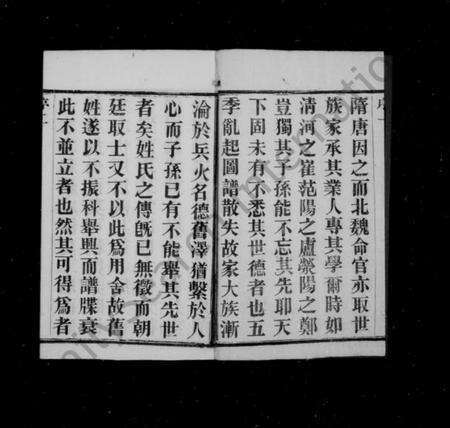 隋唐因之而北魏命官亦取世
族家承其業人專其學爾時如
清河之崔范陽之盧滎陽之鄭
豈獨其子孫能不忘其先聊天
下固未有不悉其世德者也五
季亂起圖譜散失故家大族漸
淪於兵火名德舊澤猶繫於人
心而子孫已有不能舉其先世
者矣姓氏之傳旣已無徵而朝
廷取士又不以此爲用舍故舊
姓遂以不振科舉興而譜牒衰
此不並立者也然其可得爲者
序